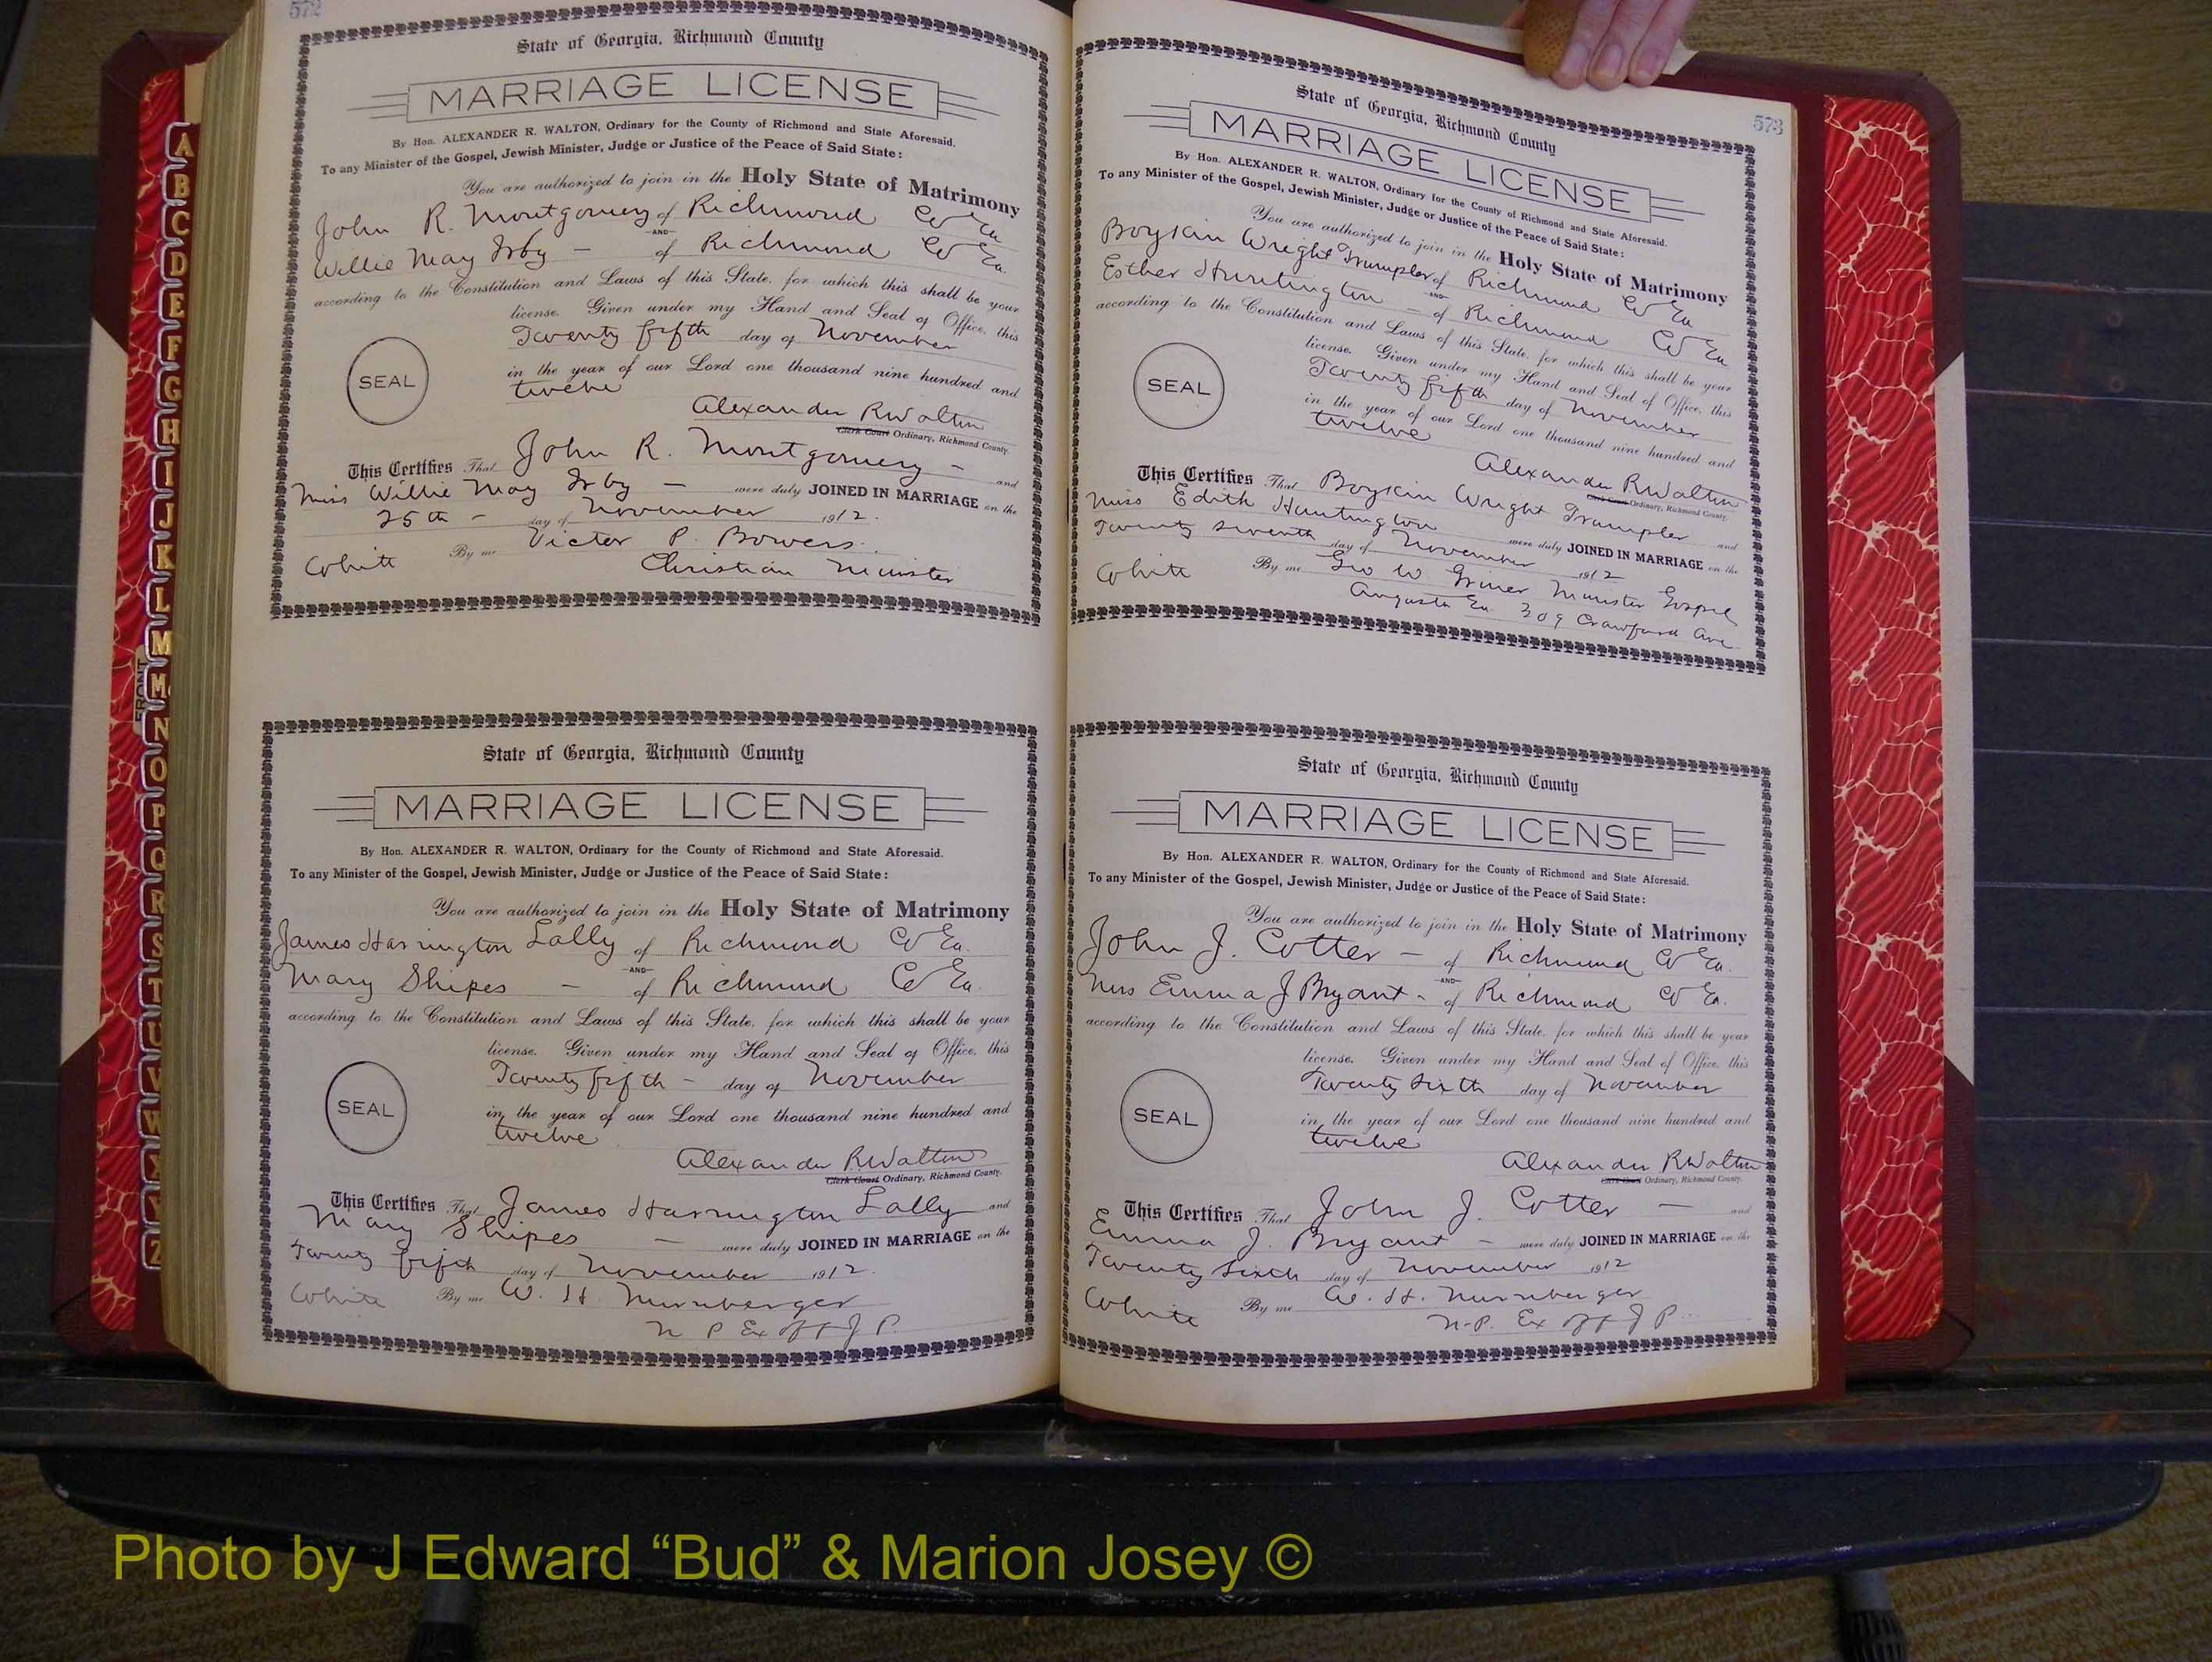 572
State of Georgia, Richmond County
MARRIAGE LICENSE
By Hon. ALEXANDER R. WALTON, Ordinary for the County of Richmond and State Aforesaid.
To any Minister of the Gospel, Jewish Minister, Judge or Justice of the Peace of Said State:
You are authorized to join in the Holy State of Matrimony
John R. Montgomery of Richmond Co Ga
AND
Willie May Irby - of Richmond Co Ga.
according to the Constitution and Laws of this State, for which this shall be your
license. Given under my Hand and Seal of Office, this
Twenty fifth day of November
SEAL
in the year of our Lord one thousand nine hundred and
twelve
Alexander R Walton
Clerk Court Ordinary, Richmond County.
This Certifies That John R. Montgomery - and
Miss Willie May Irby - were duly JOINED IN MARRIAGE on the
25th - day of November 1912.
White By me Victor P. Bowers.
Christian Minister
State of Georgia, Richmond County
MARRIAGE LICENSE
By Hon. ALEXANDER R. WALTON, Ordinary for the County of Richmond and State Aforesaid.
To any Minister of the Gospel, Jewish Minister, Judge or Justice of the Peace of Said State:
You are authorized to join in the Holy State of Matrimony
James Harrington Lally of Richmond Co Ga.
AND
Mary Shipes - of Richmond Co Ga.
according to the Constitution and Laws of this State, for which this shall be your
license. Given under my Hand and Seal of Office, this
Twenty fifth - day of November
SEAL
in the year of our Lord one thousand nine hundred and
twelve
Alexander R Walton
Clerk Court Ordinary, Richmond County.
This Certifies That James Harrington Lally and
Mary Shipes - were duly JOINED IN MARRIAGE on the
Twenty fifth day of November 1912.
White By me W. H. Nurnberger
N P Ex off J P.
573
State of Georgia, Richmond County
MARRIAGE LICENSE
By Hon. ALEXANDER R. WALTON, Ordinary for the County of Richmond and State Aforesaid.
To any Minister of the Gospel, Jewish Minister, Judge or Justice of the Peace of Said State:
You are authorized to join in the Holy State of Matrimony
Boykin Wright Trumpler of Richmond Co Ga
AND
Esther Huntington - of Richmond Co Ga
according to the Constitution and Laws of this State, for which this shall be your
license. Given under my Hand and Seal of Office, this
Twenty fifth day of November
SEAL
in the year of our Lord one thousand nine hundred and
twelve
Alexander R Walton
Clerk Court Ordinary, Richmond County.
This Certifies That Boykin Wright Trumpler and
Miss Edith Huntington were duly JOINED IN MARRIAGE on the
Twenty seventh day of November 1912
White By me Geo W. Griner Minister Gospel
Augusta Ga. 309 Crawford Ave
State of Georgia, Richmond County
MARRIAGE LICENSE
By Hon. ALEXANDER R. WALTON, Ordinary for the County of Richmond and State Aforesaid.
To any Minister of the Gospel, Jewish Minister, Judge or Justice of the Peace of Said State:
You are authorized to join in the Holy State of Matrimony
John J. Cotter - of Richmond Co Ga.
AND
Miss Emma J Bryant - of Richmond Co Ga.
according to the Constitution and Laws of this State, for which this shall be your
license. Given under my Hand and Seal of Office, this
Twenty Sixth day of November
SEAL
in the year of our Lord one thousand nine hundred and
twelve
Alexander R Walton
Clerk Court Ordinary, Richmond County.
This Certifies That John J. Cotter - and
Emma J. Bryant - were duly JOINED IN MARRIAGE on the
Twenty Sixth day of November 1912
White By me W. H. Nurnberger
N.P. Ex off J P.
A
B
C
D
E
F
G
H
I
J
K
L
M
Mc
N
O
P
Q
R
S
T
U
V
W
X
Y
Z
FRONT
Photo by J Edward “Bud” & Marion Josey ©